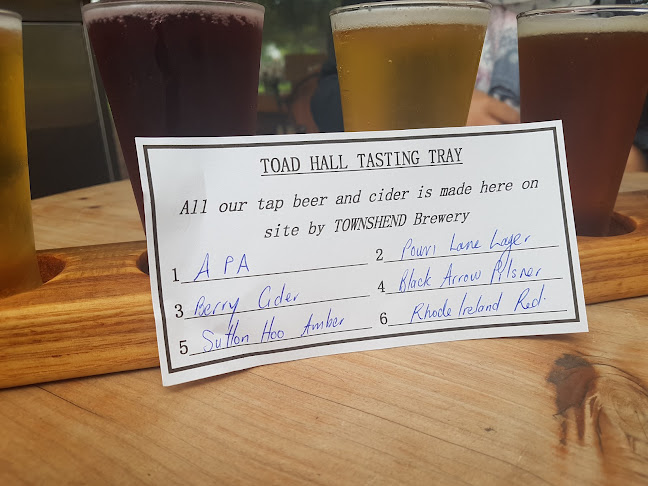 TOAD HALL TASTING TRAY
All our tap beer and cider is made here on
site by TOWNSHEND Brewery
1 APA
2 Pouri Lane Lager
3 Berry Cider
4 Black Arrow Pilsner
5 Sutton Hoo Amber
6 Rhode Ireland Red.